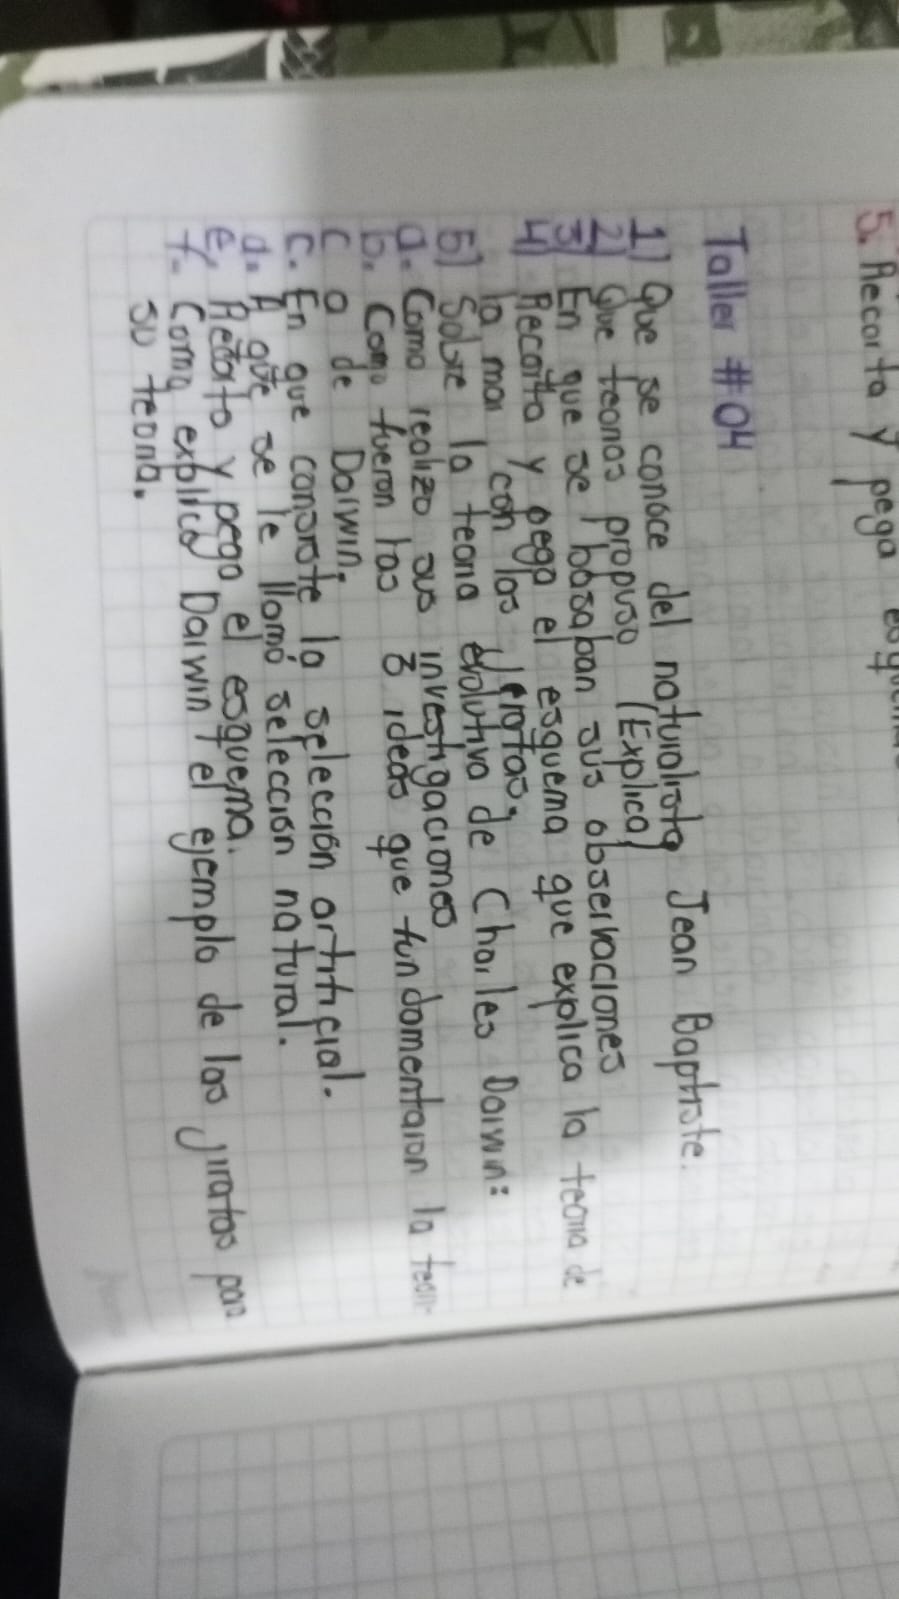 5. Recorta y pega
Taller #04
1) Que se conoce del naturalista Jean Baptiste.
2) Que teorias propuso (Explica)
3) En que se basaban sus observaciones
4) Recorto y pego el esquema que explica la teoria de
la mar con las jirafas.
5) Sobre la teoria evolutiva de Charles Darwin:
a. Como realizo sus investigaciones
b. Como fueron las 3 ideas que fundamentaron la teori-
c a de Darwin.
c. En que consiste la selección artificial.
d. A que se le llamó selección natural.
e, Recorto y pego el esquema.
f- Como explico Darwin el ejemplo de las jirafas para
su teoria.